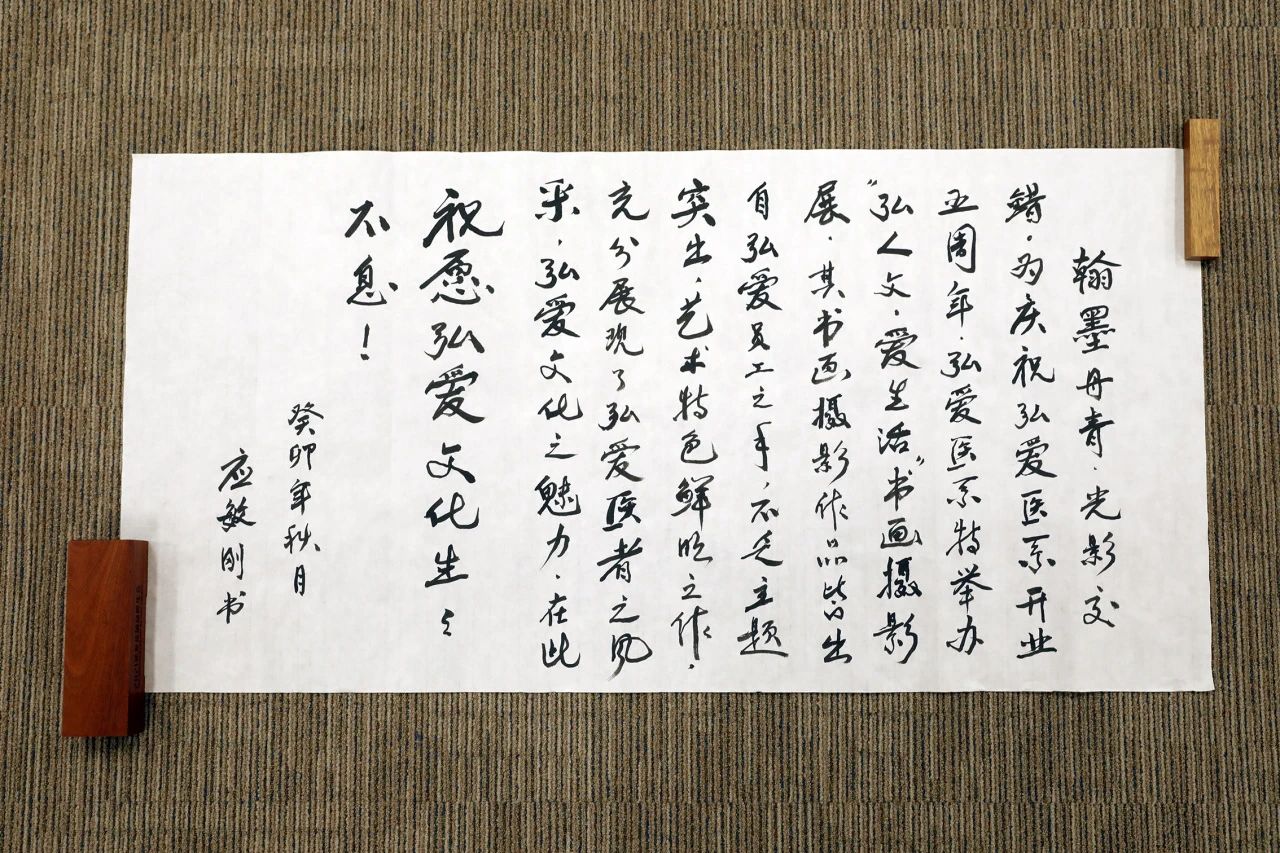 翰墨丹青，光影交
错，为庆祝弘爱医系开业
五周年，弘爱医系特举办
“弘人文，爱生活”书画摄影
展，其书画摄影作品皆出
自弘爱员工之手，不乏主题
突出，艺术特色鲜明之作，
充分展现了弘爱医者之风
采，弘爱文化之魅力，在此
祝愿弘爱文化生々
不息！
癸卯年秋月
应敏刚书